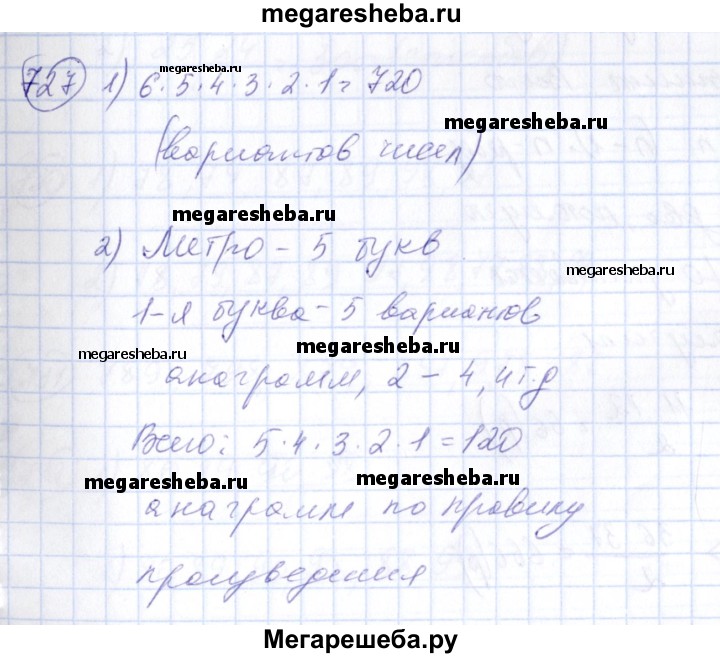 megaresheba.ru
727 1) 6·5·4·3·2·1= 720
megaresheba.ru
megaresheba.ru
(вариантов чисел)
megaresheba.ru
2) Метро - 5 букв.
megaresheba.ru
1-я буква - 5 вариантов
megaresheba.ru
megaresheba.ru
анаграмм, 2 - 4, и т.д
Всего: 5·4·3·2·1=120
megaresheba.ru
megaresheba.ru
анаграмм по правилу
произведения
Мегарешеба.ру